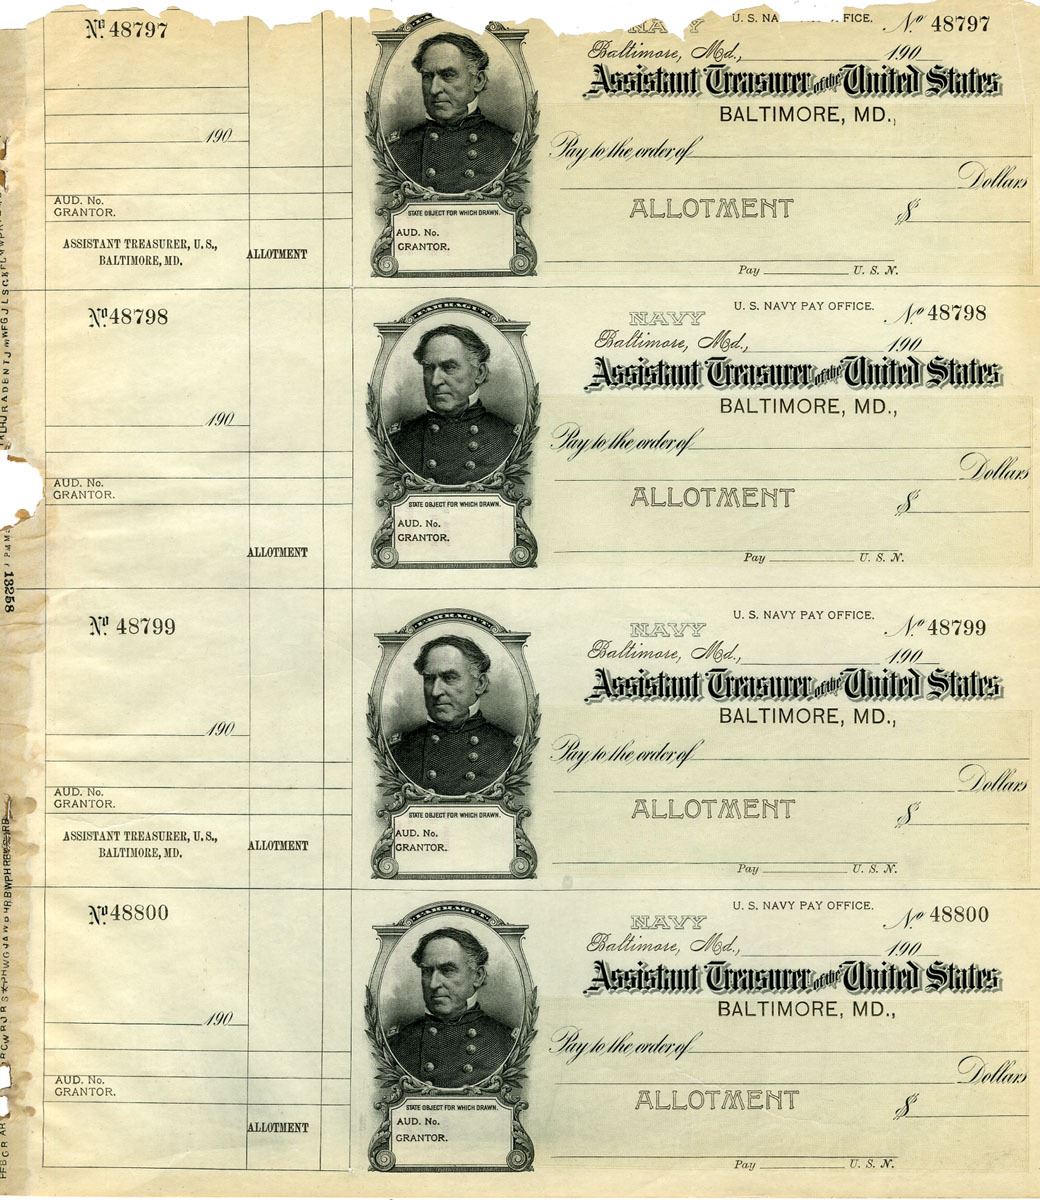 No. 48797
190
AUD. No.
GRANTOR.
ASSISTANT TREASURER, U. S.,
BALTIMORE, MD.
ALLOTMENT
STATE OBJECT FOR WHICH DRAWN.
AUD. No.
GRANTOR.
U. S. NA FICE.
NAVY
No 48797
Baltimore, Md., 190
Assistant Treasurer of the United States
BALTIMORE, MD.,
Pay to the order of
Dollars
ALLOTMENT $
Pay U. S. N.
No. 48798
190
AUD. No.
GRANTOR.
ALLOTMENT
FARRAGUT
STATE OBJECT FOR WHICH DRAWN.
AUD. No.
GRANTOR.
U. S. NAVY PAY OFFICE.
NAVY
No 48798
Baltimore, Md., 190
Assistant Treasurer of the United States
BALTIMORE, MD.,
Pay to the order of
Dollars
ALLOTMENT $
Pay U. S. N.
13258
No. 48799
190
AUD. No.
GRANTOR.
ASSISTANT TREASURER, U. S.,
BALTIMORE, MD.
ALLOTMENT
FARRAGUT
STATE OBJECT FOR WHICH DRAWN.
AUD. No.
GRANTOR.
U. S. NAVY PAY OFFICE.
NAVY
No 48799
Baltimore, Md., 190
Assistant Treasurer of the United States
BALTIMORE, MD.,
Pay to the order of
Dollars
ALLOTMENT $
Pay U. S. N.
No. 48800
190
AUD. No.
GRANTOR.
ALLOTMENT
FARRAGUT
STATE OBJECT FOR WHICH DRAWN.
AUD. No.
GRANTOR.
U. S. NAVY PAY OFFICE.
NAVY
No 48800
Baltimore, Md., 190
Assistant Treasurer of the United States
BALTIMORE, MD.,
Pay to the order of
Dollars
ALLOTMENT $
Pay U. S. N.